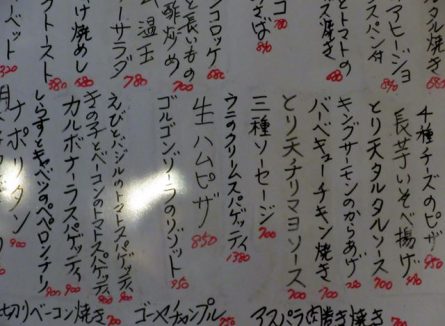 タルタル焼き
アヒージョ
スパン付 880
とトマトの
スパ焼き 680
コロ
そば 840
コロッケ 580
と長いもの
酢炒め 700
温玉
ーサラダ 780
け焼めし 680
トースト 380
ベット 320
4種チーズのピザ 950
長芋いそべ揚げ
とり天タルタルソース 720
キングサーモンのからあげ
バーベキューチキン焼き 700
とり天ナリマヨソース 700
三種ソーセージ 700
ウニのクリームスパゲッティ 1380
生ハムピザ 850
ゴルゴンゾーラのリゾット 950
えびとバジルのトマトスパゲッティ 900
きの子とベーコンのトマトスパゲッティ 900
カルボナーラスパゲッティ 900
しらすとキャベツのペペロンチーノ 900
ナポリタン 900
アスパラ肉巻き焼き
ゴーヤチャンプル 750
切りベーコン焼き 700